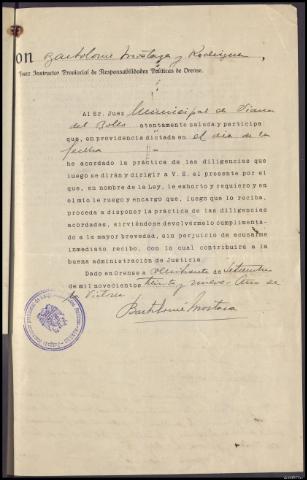 on Bartolomé Mostaza y Rodríguez,
Juez Instructor Provincial de Responsabilidades Políticas de Orense.
Al Sr. Juez Municipal de Viana
del Bollo atentamente saluda y participa
que, en providencia dictada en el día de la
fecha
he acordado la práctica de las diligencias que
luego se dirán y dirigir a V. S. el presente por el
que, en nombre de la Ley, le exhorto y requiero y en
el mio le ruego y encargo que, luego que lo reciba,
proceda a disponer la práctica de las diligencias
acordadas, sirviéndose devolvermelo cumplimenta-
do a la mayor brevedad, sin perjuicio de acusarme
inmediato recibo, con lo cual contribuirá a la
buena administración de Justicia.
Dado en Orense a de Setiembre
de mil novecientos treinta y nueve. Año de
la Victoria
Bartolomé Mostaza